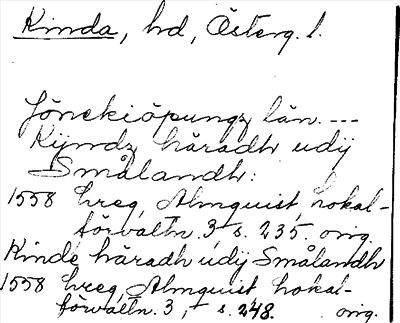 Kinda, hd, Österg. l.
Jönekiöpungz län. ---
Kijndz häradh udij
Smålandh:
1558 hreg, Almquist, Lokal-
förvaltn. 3, s. 235. orig.
Kinde häradh udij Smålandh
1558 hreg, Almquist Lokal-
förvaltn. 3, s. 248. orig.